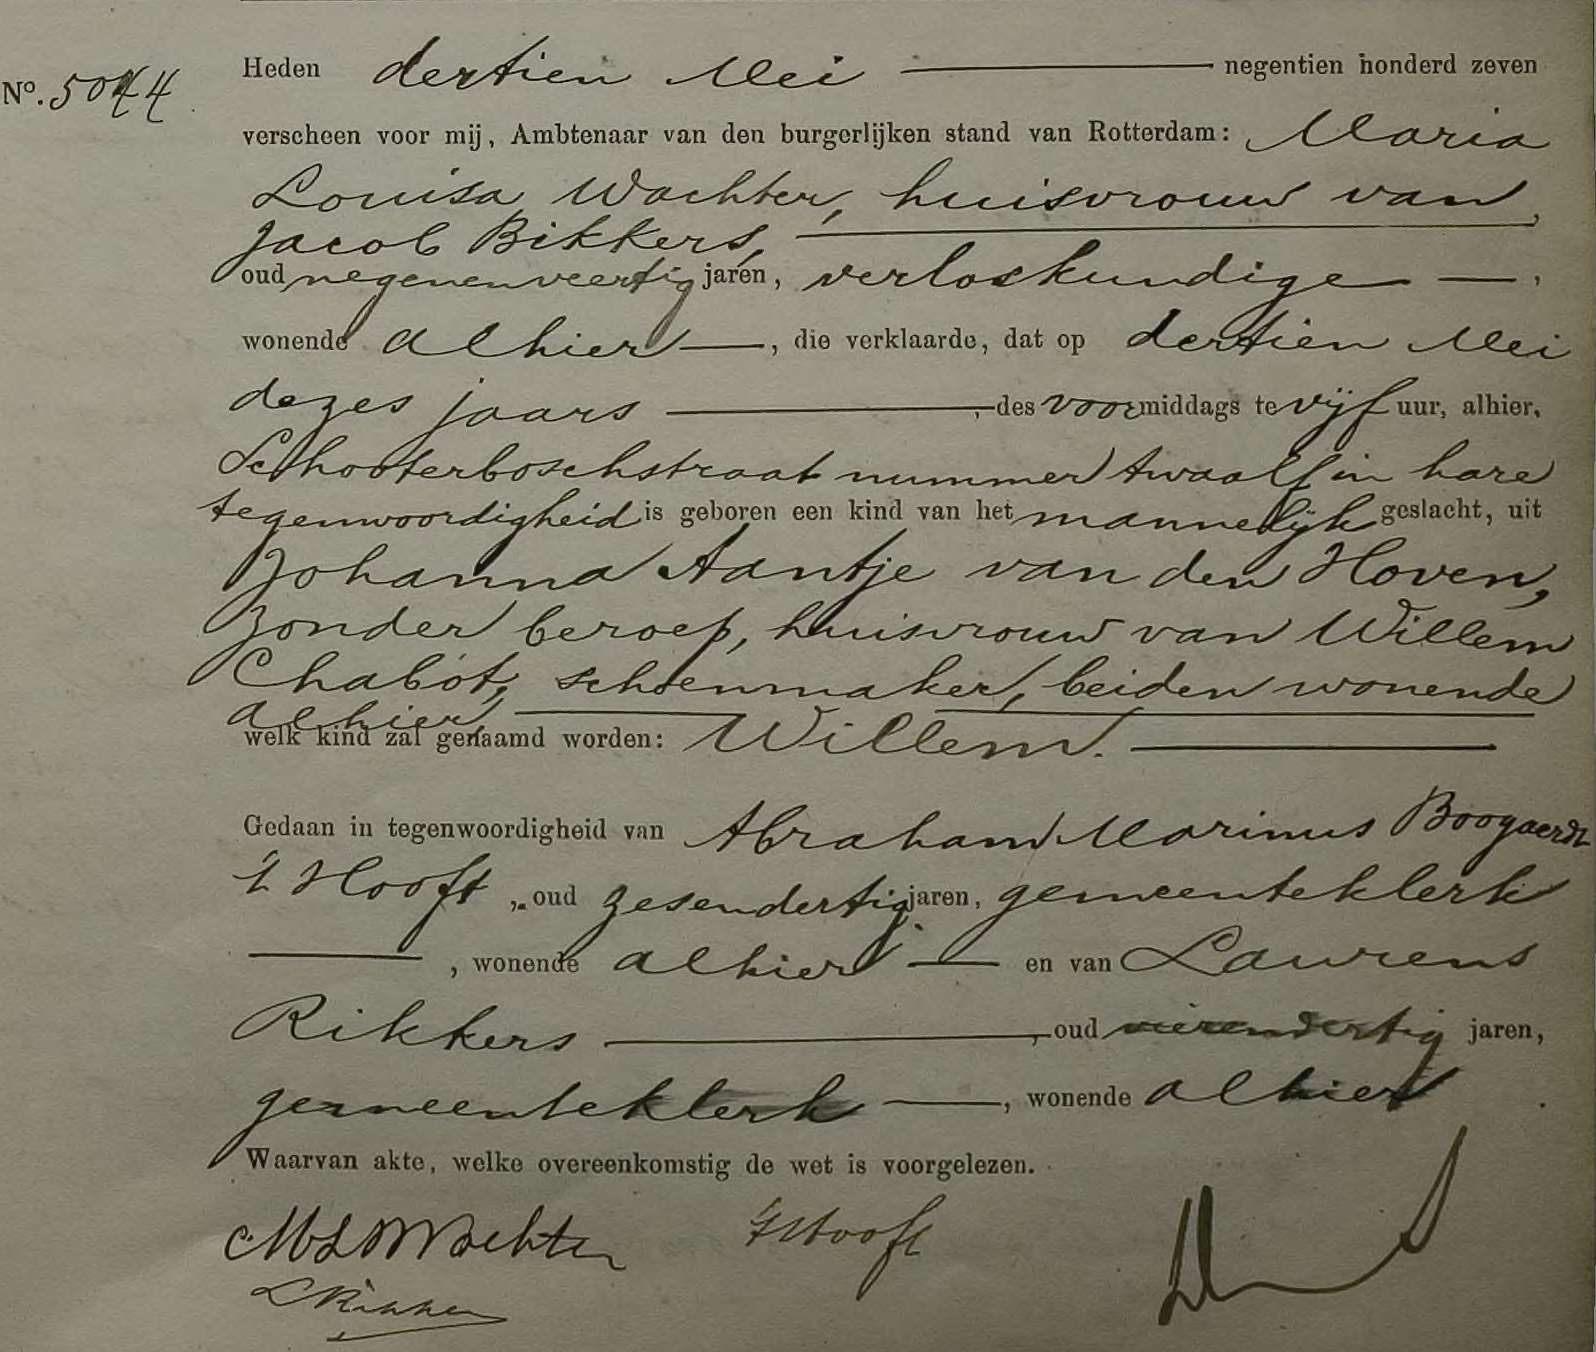 Heden dertien Mei negentien honderd zeven
No. 5044
verscheen voor mij, Ambtenaar van den burgerlijken stand van Rotterdam: Maria
Louisa Wachter, huisvrouw van
Jacob Bikkers,
oud negenenveertig jaren, verloskundige,
wonende alhier, die verklaarde, dat op dertien Mei
dezes jaars, des voormiddags te vijf uur, alhier,
Schooterboschstraat nummer twaalf in hare
tegenwoordigheid is geboren een kind van het mannelijk geslacht, uit
Johanna Aantje van den Hoven,
zonder beroep, huisvrouw van Willem
Chabot, schoenmaker, beiden wonende
alhier,
welk kind zal genaamd worden: Willem.
Gedaan in tegenwoordigheid van Abraham Marinus Boogaerdt
't Hooft, oud zesendertig jaren, gemeenteklerk
, wonende alhier en van Laurens
Rikkers, oud vierendertig jaren,
gemeenteklerk, wonende alhier
Waarvan akte, welke overeenkomstig de wet is voorgelezen.
MLWachter 't Hooft
L Rikkers